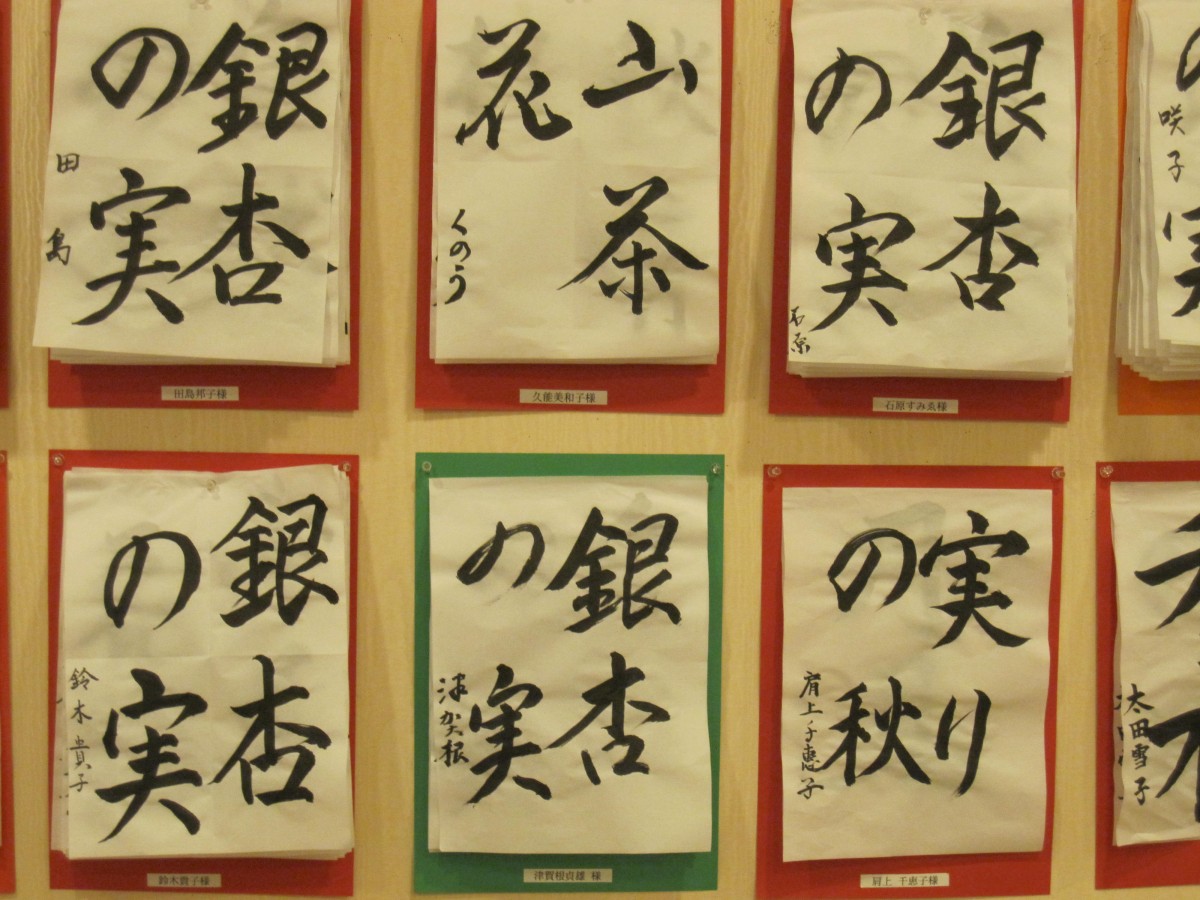 銀杏
の実
田島
田島邦子様
山茶
花
くのう
久能美和子様
銀杏
の実
石原
石原すみゑ様
咲子
銀杏
の実
鈴木貴子
鈴木貴子様
銀杏
の実
津賀根
津賀根貞雄 様
実り
の秋
肩上千恵子
肩上 千恵子様
太田雪子